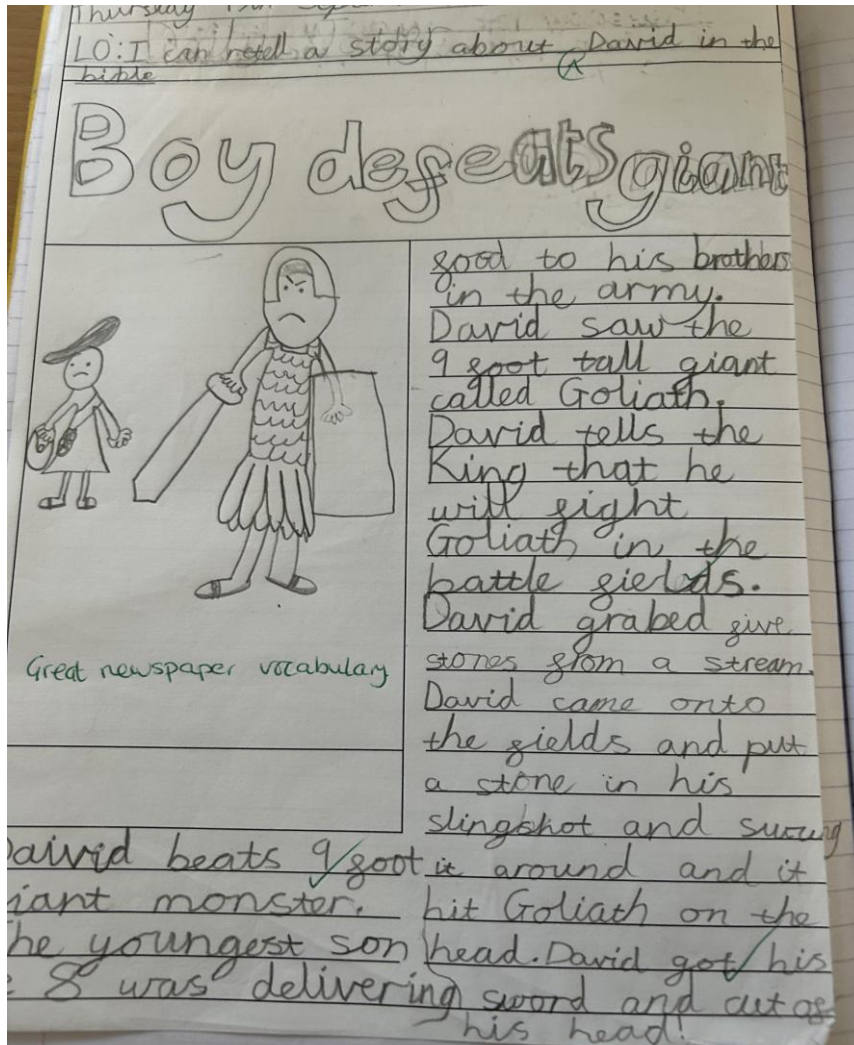 Thursday
LO: I can retell a story about David in the
bible
Boy defeats giant
Great newspaper vocabulary
Daivid beats 9 foot
iant monster.
he youngest son
8 was delivering
food to his brothers
in the army.
David saw the
9 foot tall giant
called Goliath.
David tells the
King that he
will fight
Goliath in the
battle fields.
David grabed five
stones from a stream.
David came onto
the fields and put
a stone in his
slingshot and swung
it around and it
hit Goliath on the
head. David got his
sword and cut of
his head!